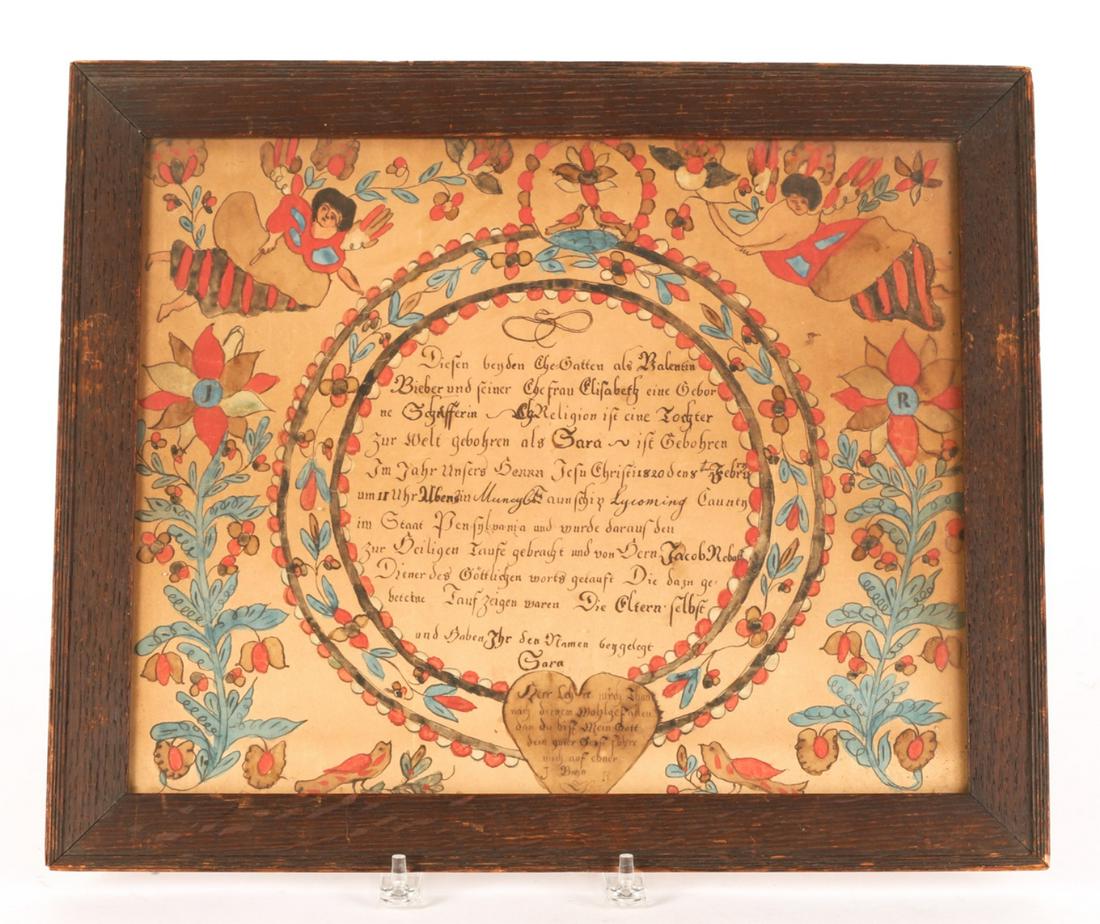 Diesen beyden Ehe-Gatten als Valentin
Bieber und seiner Ehefrau Elisabeth eine Gebor
ne Schäfferin Religion ist eine Tochter
zur Welt gebohren als Sara ~ ist Gebohren
Im Jahr Unsers Herrn Jesu Christi 1820 den 8t Febry
um 11 Uhr Abens in Muncy Taunschip Lycoming Caunty
im Staat Pensylvania und wurde darauf den
zur Heiligen Taufe gebracht und von Hern Jacob
Diener des Göttlichen worts getauft Die dazu ge
betene Taufzeigen waren Die Eltern selbst
und Haben Ihr den Namen beygelegt
Sara
J
R
Herr Lehre mich Thun
nach deinem Wohlgefallen
dan du bist Mein Gott
dein guter Geist führe
mich auf ebner
J Bahn R